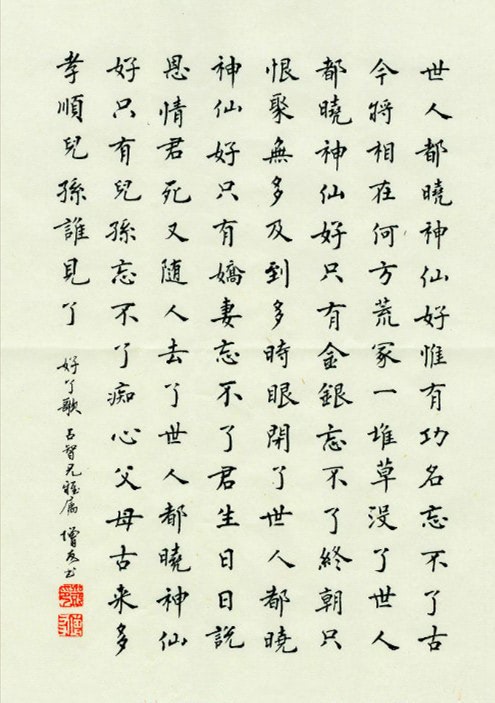 世人都曉神仙好惟有功名忘不了古
今將相在何方荒冢一堆草沒了世人
都曉神仙好只有金銀忘不了終朝只
恨聚無多及到多時眼閉了世人都曉
神仙好只有嬌妻忘不了君生日日說
恩情君死又随人去了世人都曉神仙
好只有兒孫忘不了痴心父母古来多
孝順兒孫誰見了
好了歌 智兄雅属 僧